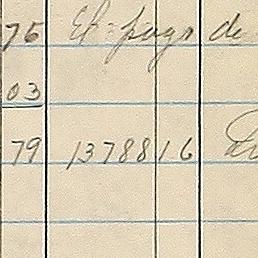 75 El pago de
03
79 1378816